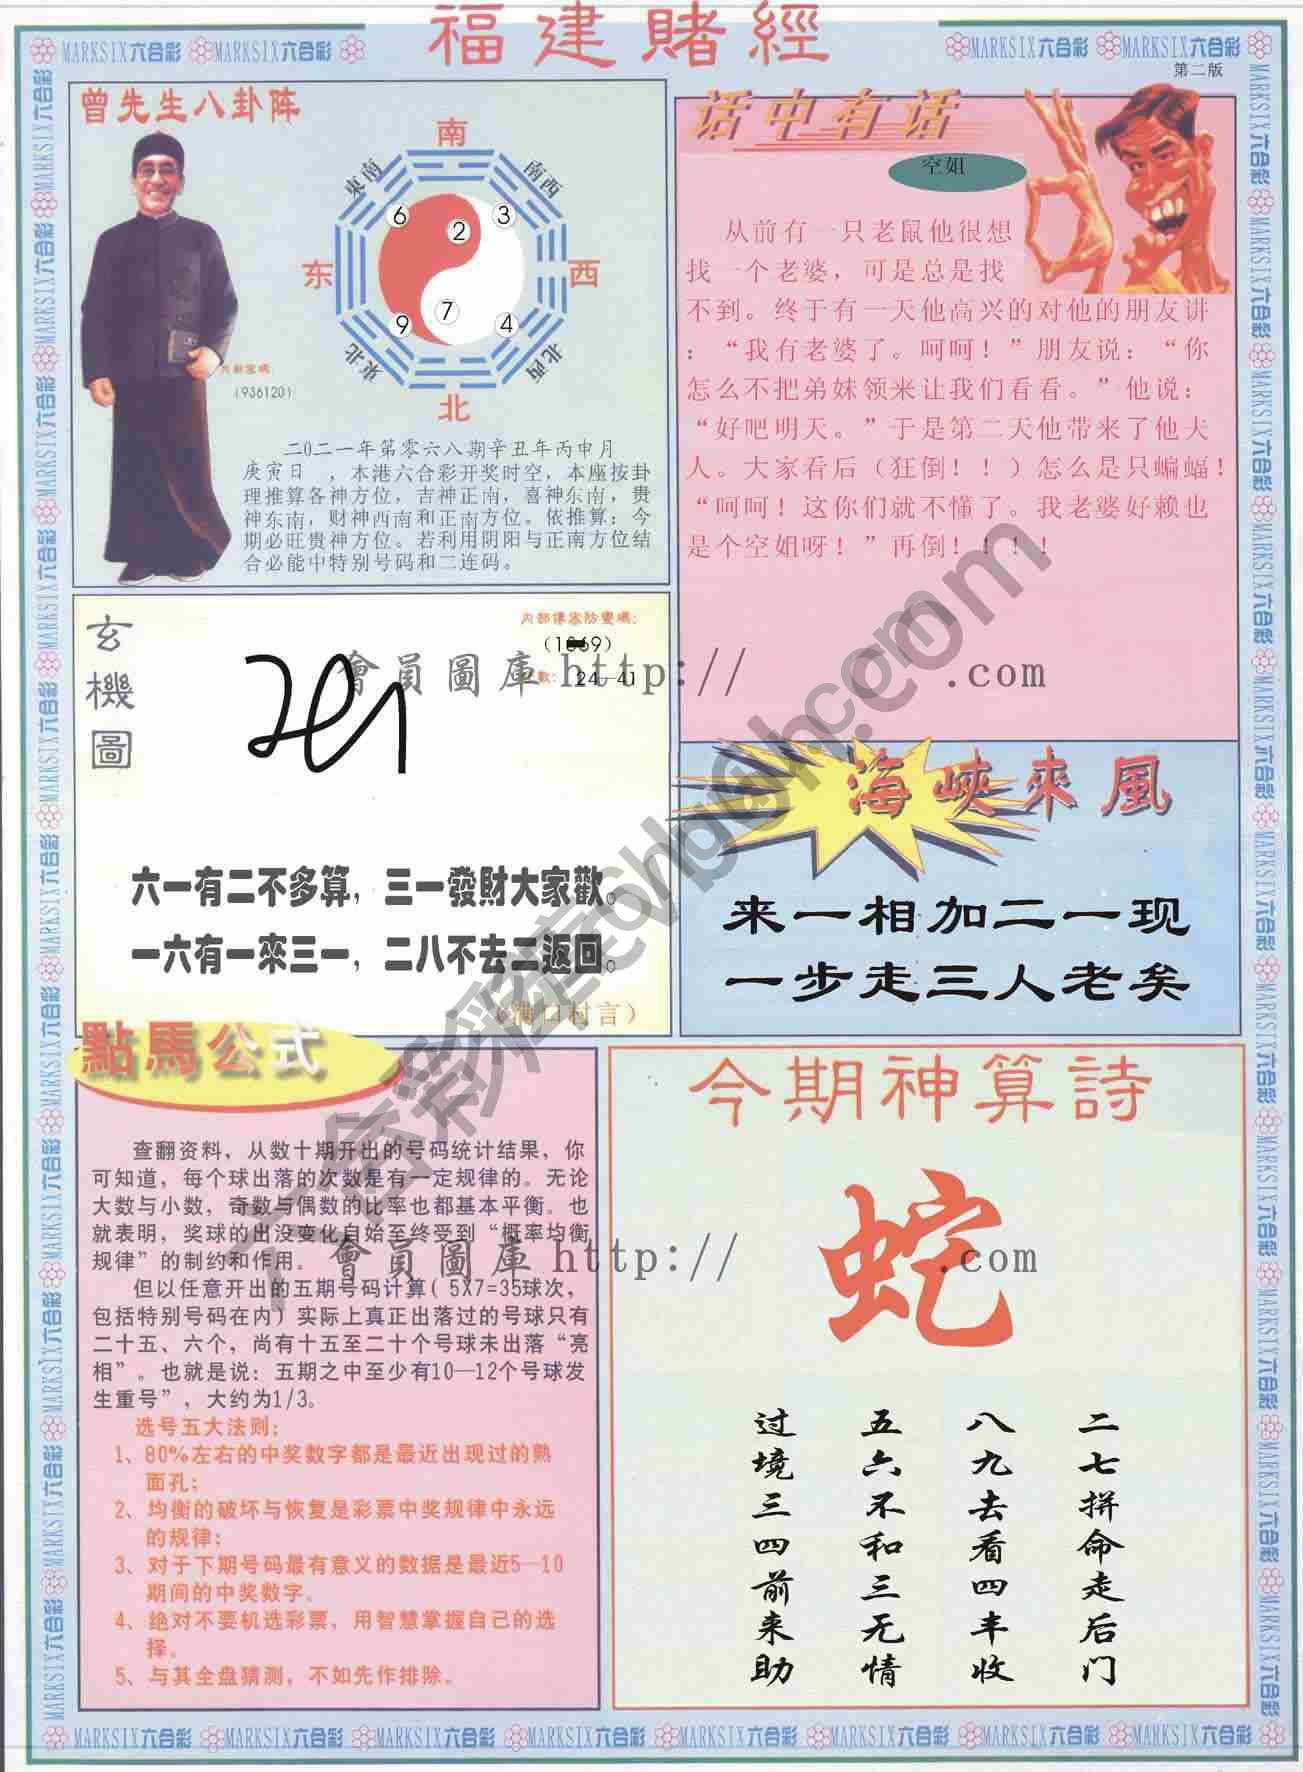 福建賭經
MARKSIX六合彩 MARKSIX六合彩
MARKSIX六合彩 MARKSIX六合彩
第二版
曾先生八卦阵
南
東南
南西
6
2
3
东
西
9
7
4
東北
北西
北
(936120)
二0二一年第零六八期辛丑年丙申月
庚寅日 ，本港六合彩开奖时空，本座按卦
理推算各神方位，吉神正南，喜神东南，贵
神东南，财神西南和正南方位。依推算：今
期必旺贵神方位。若利用阴阳与正南方位结
合必能中特别号码和二连码。
话中有话
空姐
从前有一只老鼠他很想
找一个老婆，可是总是找
不到。终于有一天他高兴的对他的朋友讲
：“我有老婆了。呵呵！”朋友说：“你
怎么不把弟妹领来让我们看看。”他说：
“好吧明天。”于是第二天他带来了他夫
人。大家看后（狂倒！！）怎么是只蝙蝠！
“呵呵！这你们就不懂了。我老婆好赖也
是个空姐呀！”再倒！！！！
玄機圖
内部傳密防變碼：
24—41
會員圖庫 http:// .com
六一有二不多算，三一發財大家歡。
一六有一來三一，二八不去二返回。
（满口村言）
海峽來風
来一相加二一现
一步走三人老矣
點馬公式
查翻资料，从数十期开出的号码统计结果，你
可知道，每个球出落的次数是有一定规律的。无论
大数与小数，奇数与偶数的比率也都基本平衡。也
就表明，奖球的出没变化自始至终受到“概率均衡
规律”的制约和作用。
但以任意开出的五期号码计算( 5X7=35球次，
包括特别号码在内) 实际上真正出落过的号球只有
二十五、六个，尚有十五至二十个号球未出落“亮
相”。也就是说：五期之中至少有10—12个号球发
生重号”，大约为1/3。
选号五大法则：
1、80%左右的中奖数字都是最近出现过的熟
面孔；
2、均衡的破坏与恢复是彩票中奖规律中永远
的规律；
3、对于下期号码最有意义的数据是最近5—10
期间的中奖数字。
4、绝对不要机选彩票，用智慧掌握自己的选
择。
5、与其全盘猜测，不如先作排除。
會員圖庫 http:// .com
今期神算詩
蛇
二七拼命走后门
八九去看四丰收
五六不和三无情
过境三四前来助
MARKSIX六合彩 MARKSIX六合彩 MARKSIX六合彩 MARKSIX六合彩 MARKSIX六合彩 MARKSIX六合彩 MARKSIX六合彩 MARKSIX六合彩